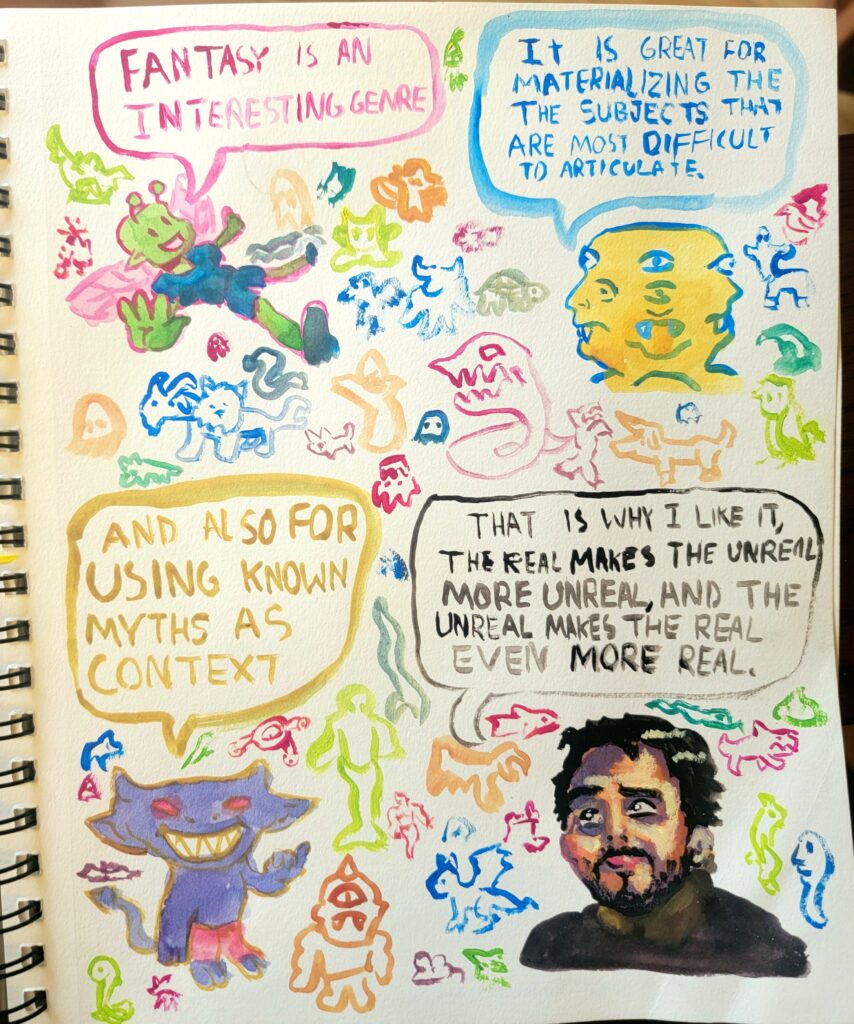 FANTASY IS AN
INTERESTING GENRE
IT IS GREAT FOR
MATERIALIZING THE
THE SUBJECTS THAT
ARE MOST DIFFICULT
TO ARTICULATE.
AND ALSO FOR
USING KNOWN
MYTHS AS
CONTEXT
THAT IS WHY I LIKE IT,
THE REAL MAKES THE UNREAL
MORE UNREAL, AND THE
UNREAL MAKES THE REAL
EVEN MORE REAL.